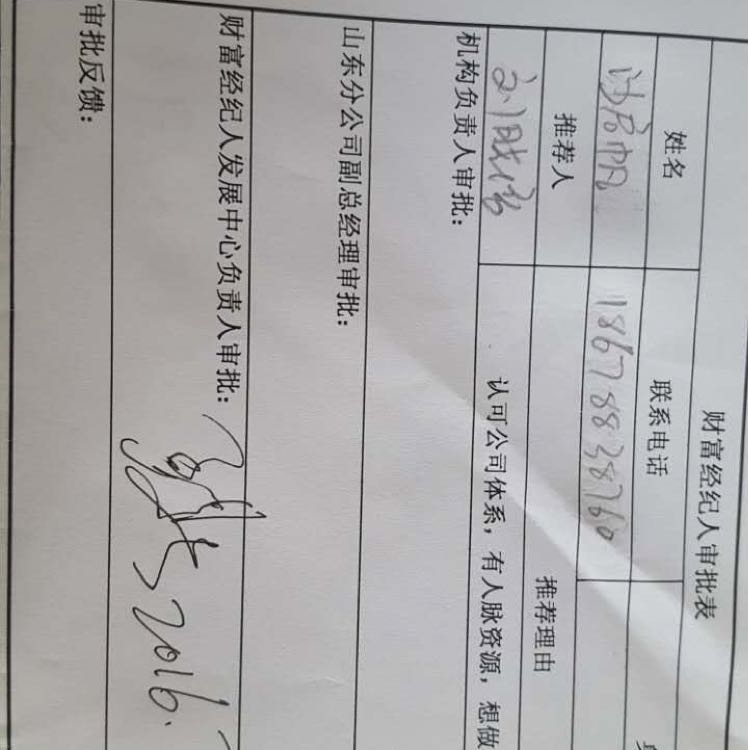 财富经纪人审批表
姓名 联系电话
18678838760
推荐人 推荐理由
认可公司体系，有人脉资源，想做
机构负责人审批：
山东分公司副总经理审批：
财富经纪人发展中心负责人审批：
2016.
审批反馈：